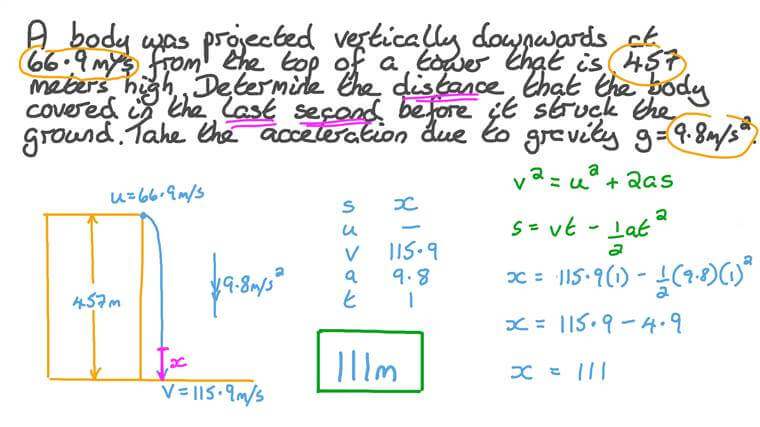 A body was projected vertically downwards at
66.9 m/s from the top of a tower that is 457
meters high. Determine the distance that the body
covered in the last second before it struck the
ground. Take the acceleration due to gravity g=9.8m/s².
u=66.9m/s
457m
9.8m/s²
x
V=115.9m/s
s x
u –
v 115.9
a 9.8
t 1
111m
v²=u²+2as
s=vt-½at²
x=115.9(1)-½(9.8)(1)²
x=115.9-4.9
x=111